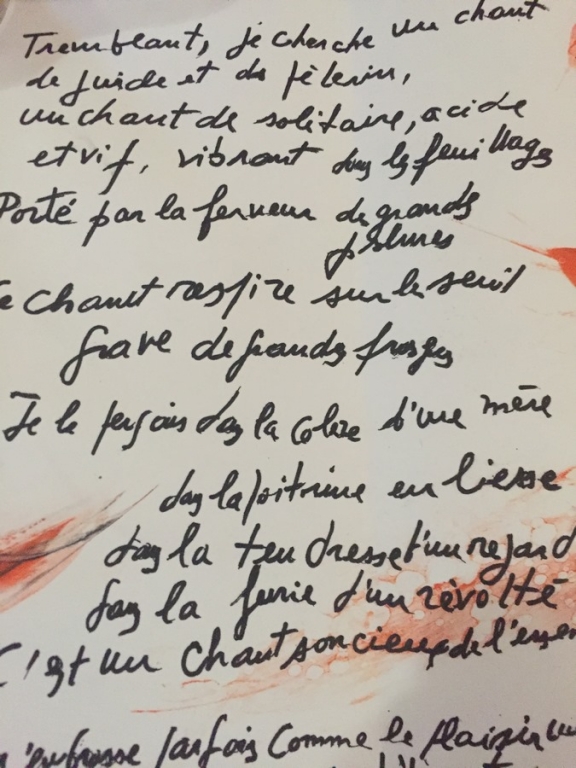 Tremblant, je cherche un chant
de guide et de pèlerin,
un chant de solitaire, acide
et vif, vibrant dans les feuillages
Porté par la ferveur de grands
psaumes
Ce chant respire sur le seuil
grave de grandes
Je le perçois dans la colère d'une mère
dans la poitrine en liesse
dans la tendresse d'un regard
dans la furie d'un révolté
C'est un chant soucieux de
parfois comme le plaisir